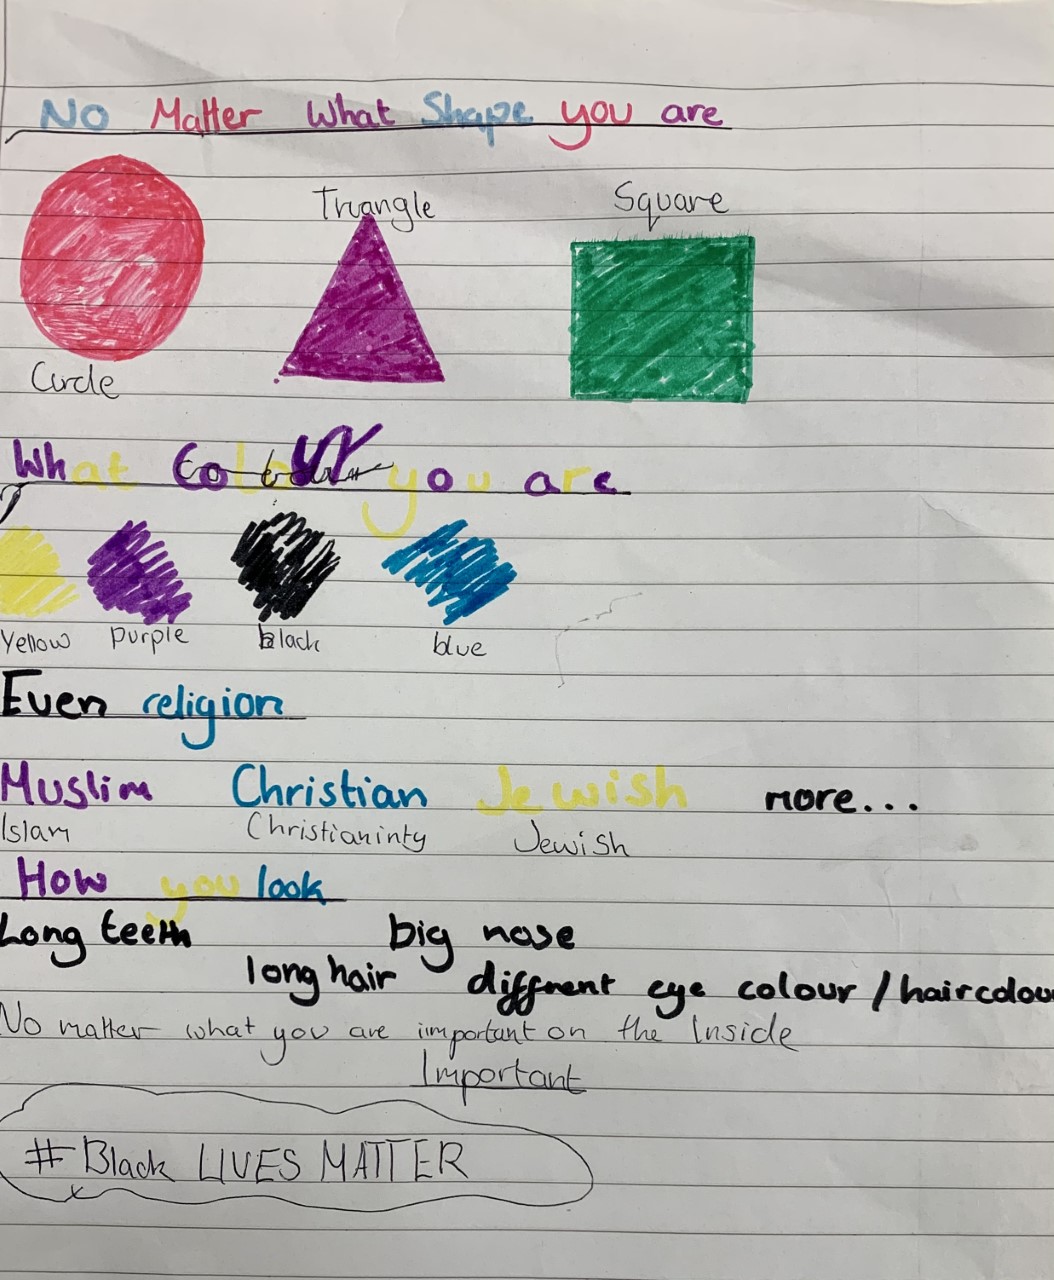 No Matter What Shape you are
Triangle Square
Circle
What Colour you are
Yellow purple black blue
Even religion
Muslim Christian Jewish more...
Islam Christianinty Jewish
How you look
Long teeth big nose
long hair diffrent eye colour / haircolou
No matter what you are important on the Inside
Important
# Black LIVES MATTER